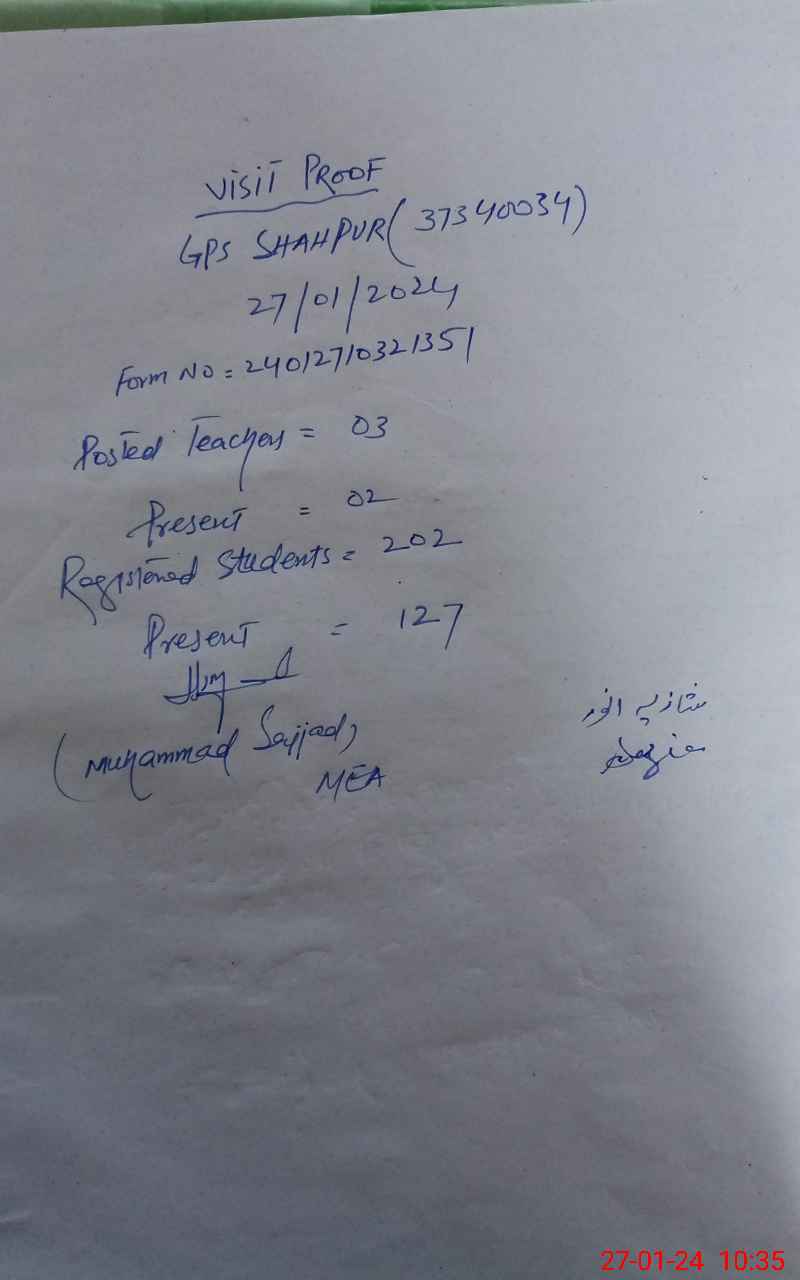 VISIT PROOF
GPS SHAHPUR (37340034)
27/01/2024
Form NO = 24012710321351
Posted Teachers = 03
Present = 02
Registered Students = 202
Present = 127
(Muhammad Sajjad)
MEA
شازیہ انور
Shazia
27-01-24 10:35